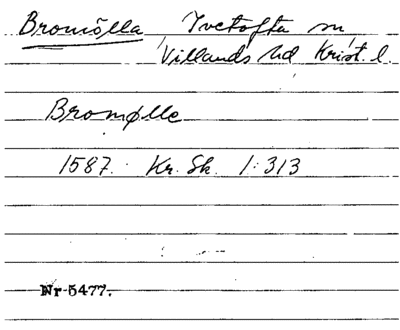 Bromölla Ivetofta sn
Villands hd Krist. l.
Bromølle
1587. Kr. Sk. 1:313
Nr 5477.